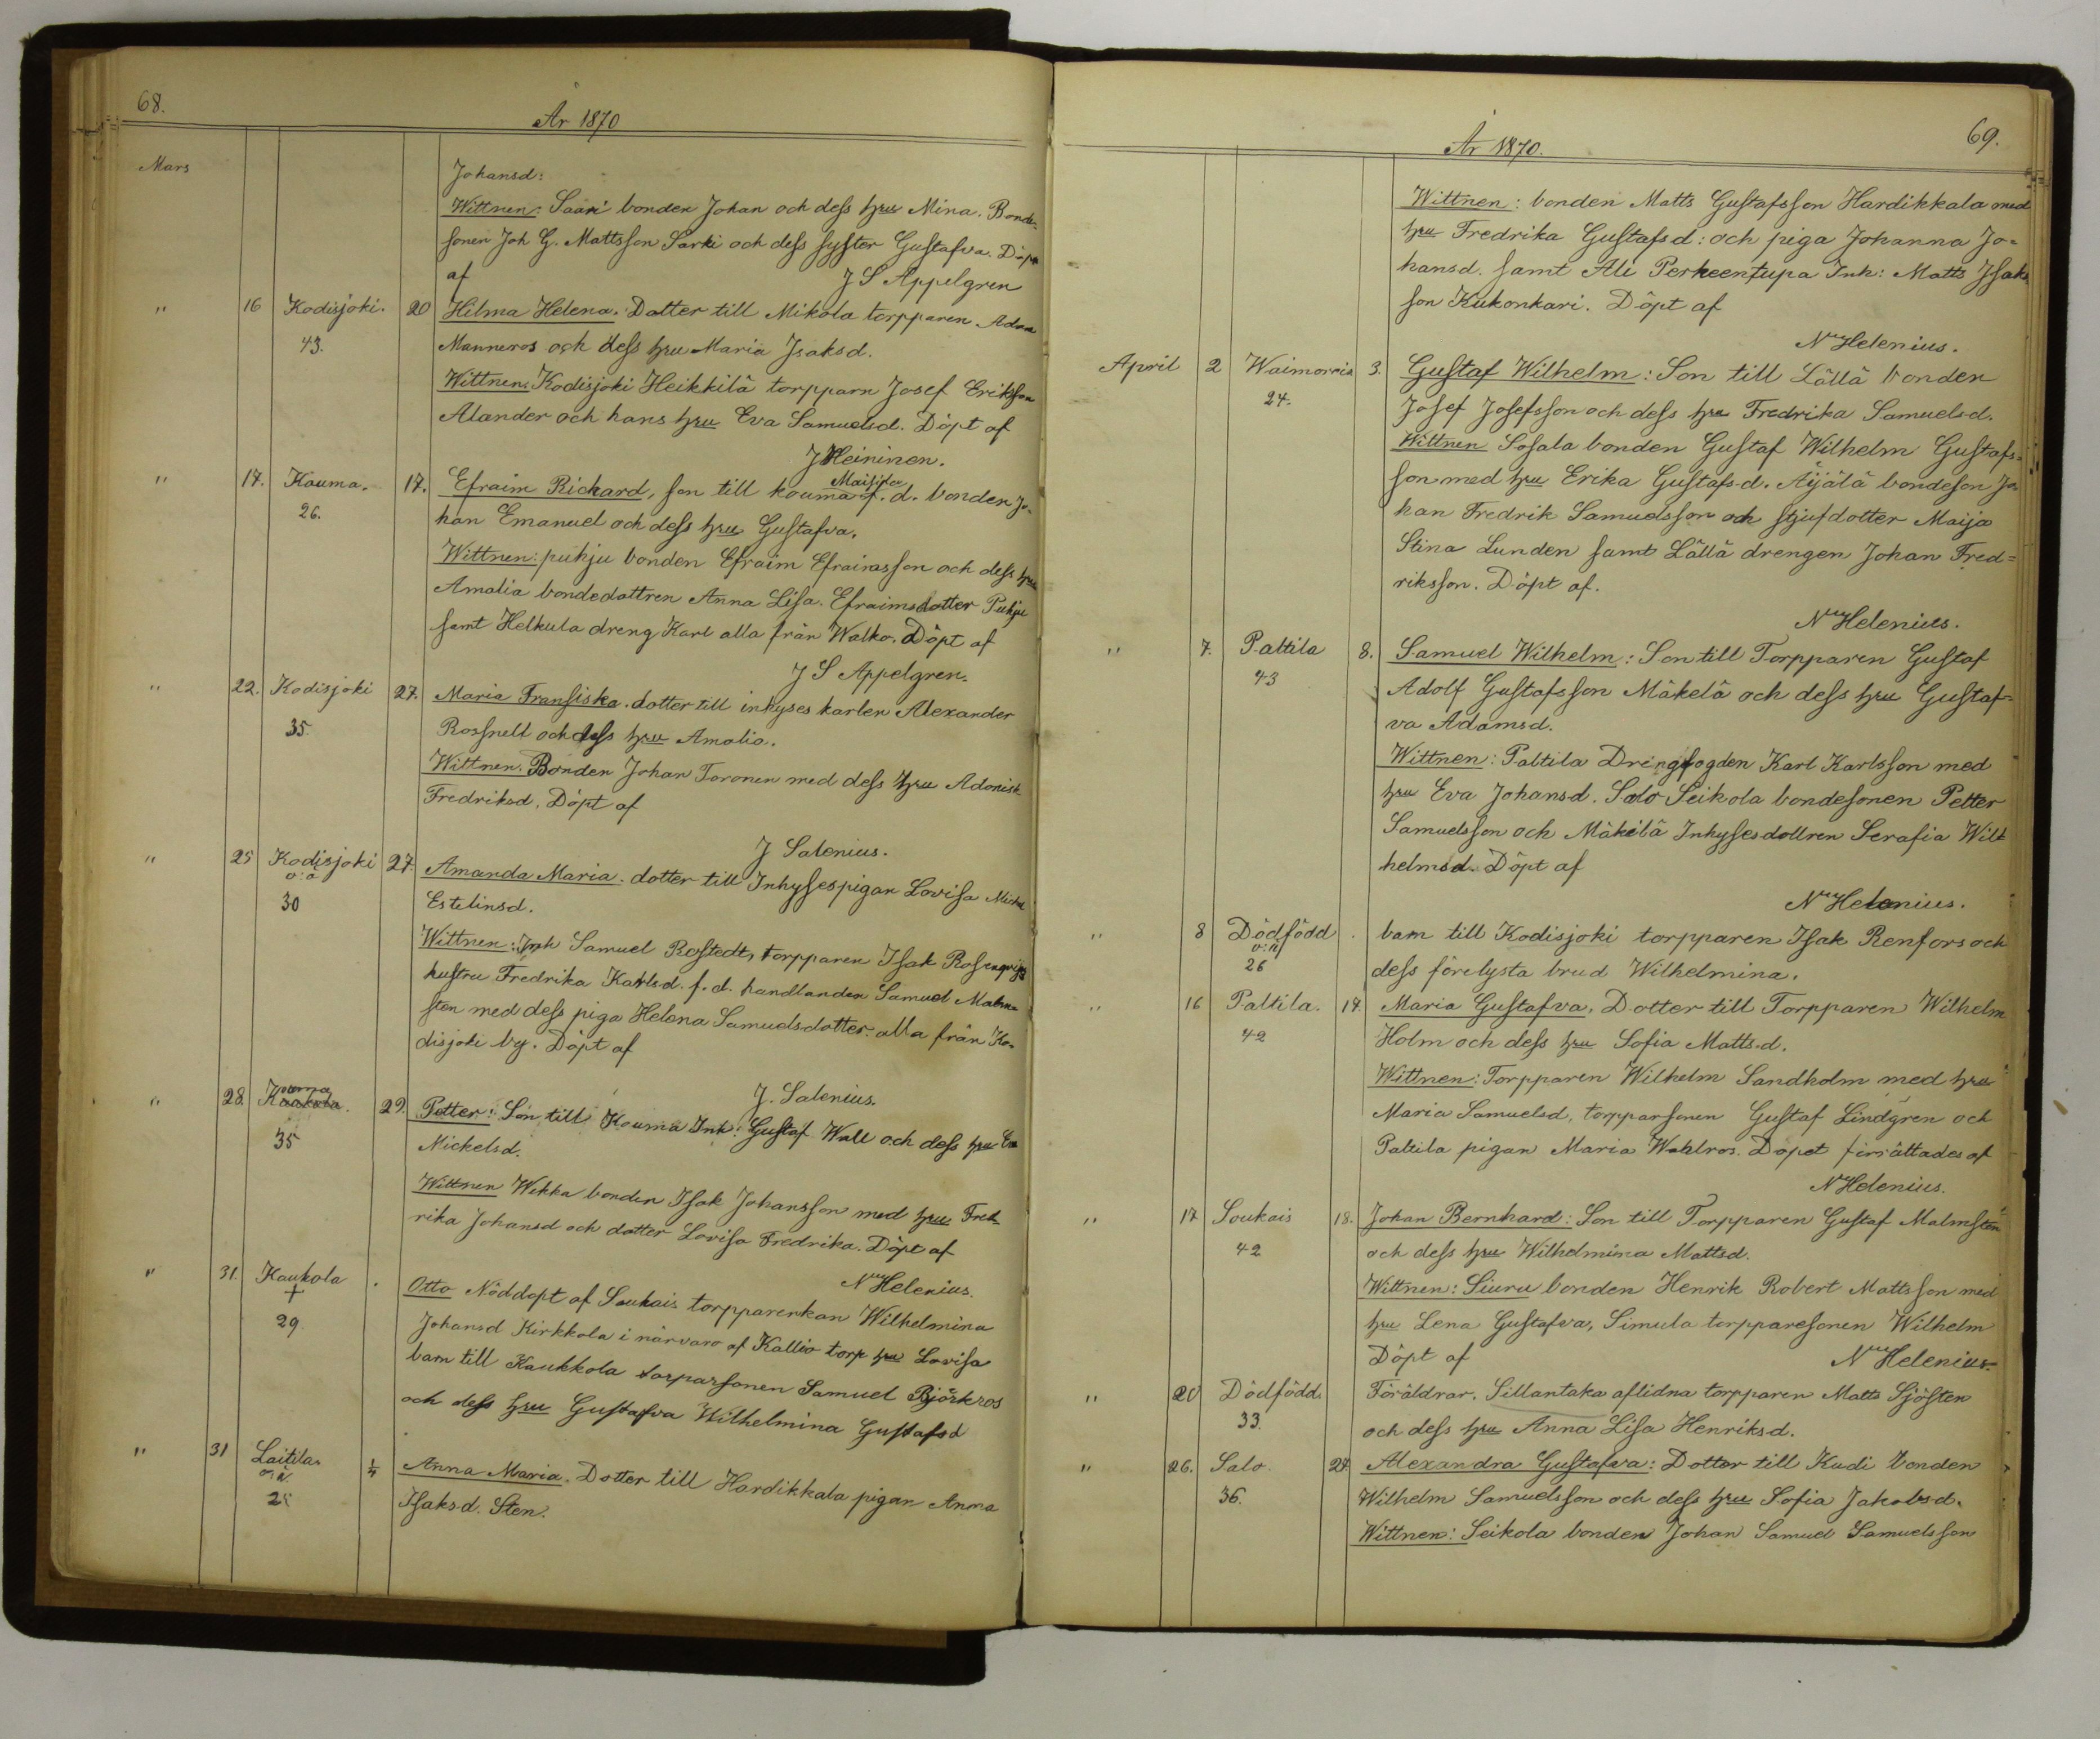 68.
År 1870
Mars
Johansd:
Wittnen: Saari bonden Johan och dess hru Mina. Bonde-
sonen Joh G. Mattsson Särki och dess syster Gustafva. Döpt
af
J S Appelgren
" 16 Kodisjoki. 20 Hilma Helena. Dotter till Mikola torpparen Adam
43. Manneros och dess hru Maria Isaksd.
Wittnen. Kodisjoki Heikkilä torpparn Josef Eriksson
Alander och hans hru Eva Samuelsd. Döpt af
J Heininen.
" 17. Kouma. 17. Efraim Richard, son till kouma Maisifer f. d. bonden Jo-
26. han Emanuel och dess hru Gustafva.
Wittnen: puhju bonden Efraim Efraimsson och dess hru
Amalia bondedottren Anna Lisa. Efraimsdotter Puhju
samt Helkula dreng Karl alla från Walko. Döpt af
J S Appelgren.
" 22. Kodisjoki 27. Maria Fransiska. dotter till inhyses karlen Alexander
35. Rossnell och dess hru Amalia.
Wittnen. Bonden Johan Toronen med dess hru Adonisk
Fredriksd. Döpt af
J Salenius.
" 25 Kodisjoki 27. Amanda Maria. dotter till Inhysespigan Lovisa Michel
o: ä
30 Estelinsd.
Wittnen: Inh Samuel Rostedt, torpparen Isak Rosenqvists
hustru Fredrika Karlsd. f. d. handlanden Samuel Malm-
sten med dess piga Helena Samuelsdotter. alla från Ko-
disjoki by. Döpt af
J. Salenius.
" 28. Kouma 29. Petter: Son till Kouma Inh: Gustaf Wall och dess hru Eva
35 Mickelsd.
Wittnen Wekka bonden Isak Johansson med hru Fred-
rika Johansd och dotter Lovisa Fredrika. Döpt af
N Helenius.
" 31. Kaukola . Otto Nöddöpt af Soukais torpparenkan Wilhelmina
+
29. Johansd Kirkkola i närvaro af Kallio torp hru Lovisa
barn till Kaukkola torparsonen Samuel Björkros
och dess hru Gustafva Wilhelmina Gustafsd
" 31 Laitila. 1/4 Anna Maria. Dotter till Hardikkala pigan Anna
o: ä.
25 Isaksd. Sten.
69.
År 1870.
Wittnen: bonden Matts Gustafsson Hardikkala med
hru Fredrika Gustafsd: och piga Johanna Jo-
hansd. samt Ali Perkeentupa Inh: Matts Isaks
son Kukonkari. Döpt af
N Helenius.
April 2 Waimaris 3. Gustaf Wilhelm: Son till Lällä bonden
24. Josef Josefsson och dess hru Fredrika Samuelsd.
Wittnen Sosala bonden Gustaf Wilhelm Gustafs-
son med hru Erika Gustafs-d. Äijälä bondeson Jo
han Fredrik Samuelsson och stjufdotter Maija
Stina Lunden samt Lällä drengen Johan Fred=
riksson. Döpt af.
N Helenius.
" 7. Paltila 8. Samuel Wilhelm: Son till Torpparen Gustaf
43 Adolf Gustafsson Mäkelä och dess hru Gustaf-
va Adamsd.
Wittnen: Paltila Drengfogden Karl Karlsson med
hru Eva Johansd. Salo Seikola bondesonen Petter
Samuelsson och Mäkelä Inhysesdottren Serafia Wil-
helmsd. Döpt af
N Helenius.
" 8 Dödfödd . barn till Kodisjoki torpparen Isak Renfors och
o: ä
26 dess förelysta brud Wilhelmina.
" 16 Paltila. 17. Maria Gustafva, Dotter till Torpparen Wilhelm
42 Holm och dess hru Sofia Matts.d.
Wittnen: Torpparen Wilhelm Sandholm med hru
Maria Samuelsd, torpparsonen Gustaf Lindgren och
Paltila pigan Maria Wahlros. Döpet förrättades af
N Helenius.
" 17 Soukais 18. Johan Bernhard: Son till Torpparen Gustaf Malmsten
42 och dess hru Wilhelmina Mattsd.
Wittnen: Siuru bonden Henrik Robert Mattsson med
hru Lena Gustafva, Simula torpparesonen Wilhelm
Döpt af N Helenius.
" 20 Dödfödd. Föräldrar. Sillantaka aflidna torpparen Matts Sjösten
33. och dess hru Anna Lisa Henriksd.
" 26. Salo. 27 Alexandra Gustafva: Dotter till Kudi bonden
36. Wilhelm Samuelsson och dess hru Sofia Jakobsd.
Wittnen: Seikola bonden Johan Samuel Samuelsson